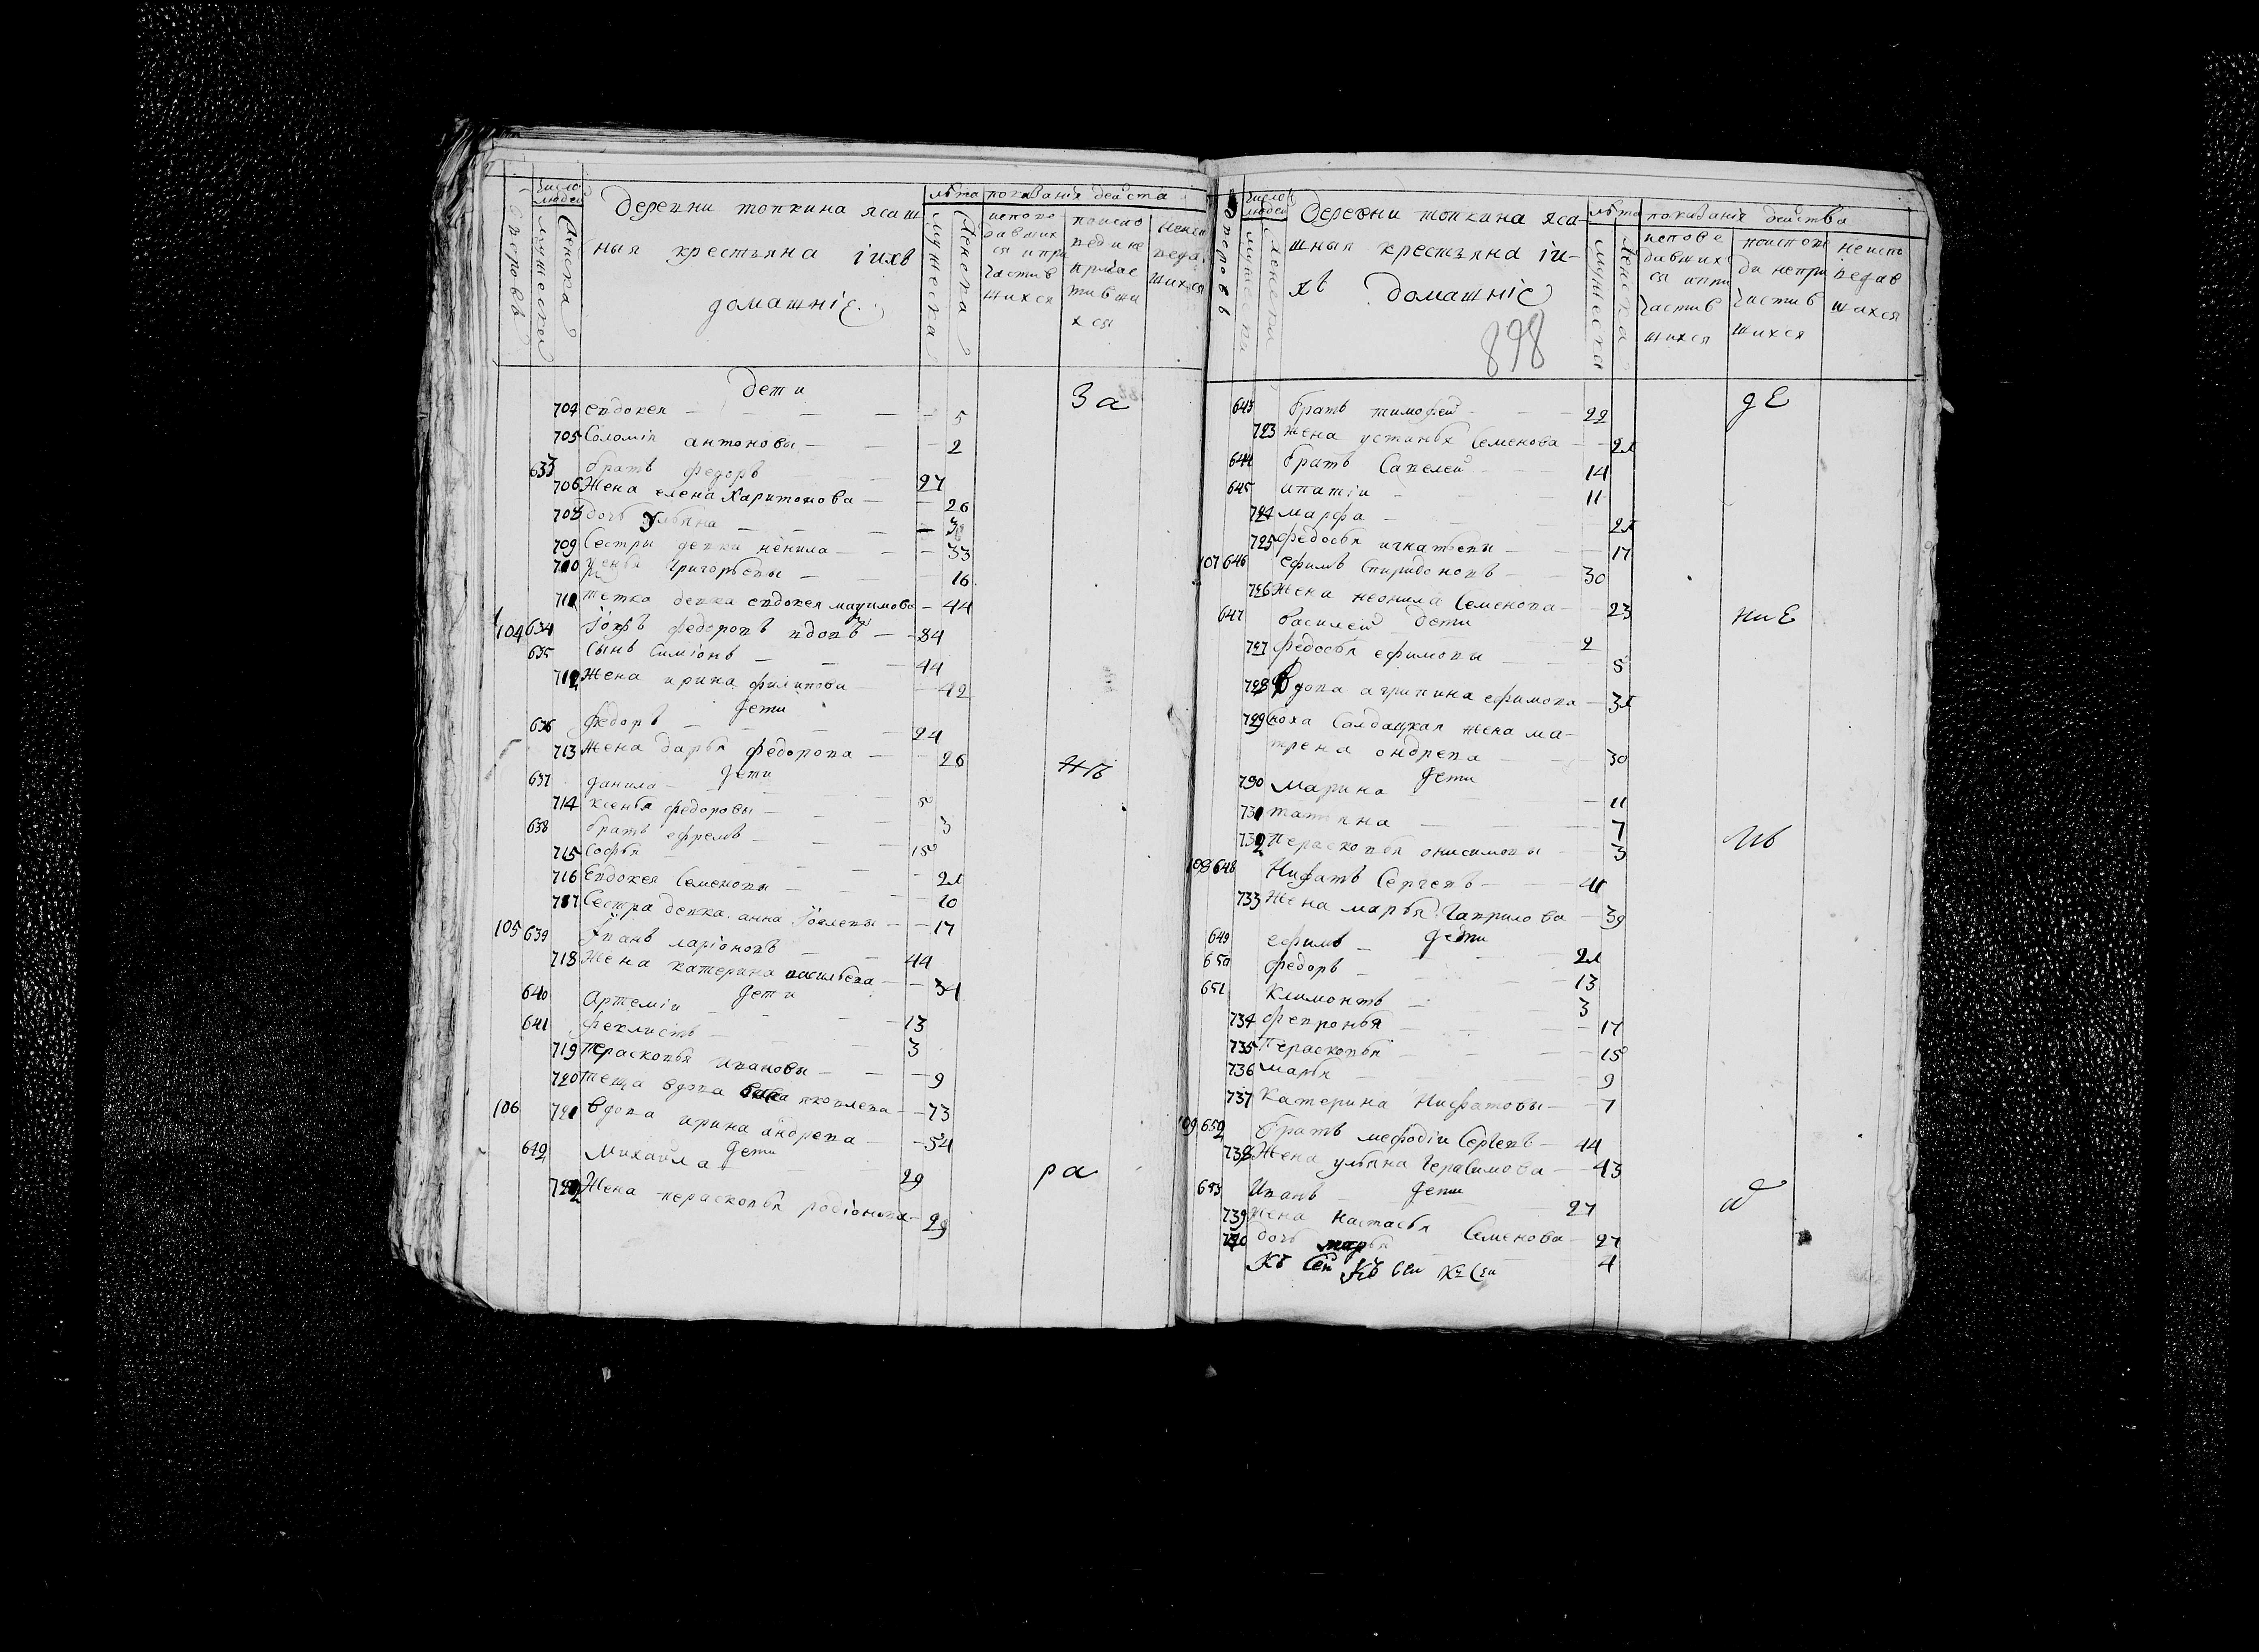 число людей
дворовъ
мужеска
женска
Деревни топкина ясаш
ныя крестьяна іихъ
домашніе
лѣта
мужеска
женска
показанія действа
испове
давших
ся и при
частив
шихся
поиспо
веди не
причас
тивши
хся
неиспо
ведав
шихся
Дети
704 евдокея — 5
705 Соломія антоновы — 2
633 братъ федоръ — 27
706 Жена елена Харитонова — 26
дочь Ульяна —
709 Сестры девки ненила — 33
710 Григорьевы — 16
711 тетка девка евдокея — 44
104 634 федоровъ вдовъ — 84
635 Сынъ Симіонъ — 44
712 Жена ирина филипова — 42
Дети
636 федоръ — 24
713 Жена дарья федорова — 26
Дети
637 данила — 5
714 Ксенья федоровы — 3
638 братъ ефремъ — 15
715 Софья — 21
716 Евдокея Семеновы — 10
717 Сестра девка анна — 17
105 639 Іванъ ларіоновъ — 44
718 Жена катерина васильева — 34
Дети
640 Артеміи — 13
641 феклистъ — 3
719 Перасковья ивановы — 9
720 теща вдова яковлева — 73
106 721 Вдова ирина андрева — 54
Дети
642 Михаила — 29
722 Жена перасковья родіонова — 29
За
нъ
ра
дворовъ
число людей
мужеска
женска
Деревни топкина яса-
шныя крестьяна іи-
хъ домашніе
898
лѣта
мужеска
женска
показанія действа
испове
давших
ся и при
частив
шихся
поиспове
ди непри
частив
шихся
неиспо
ведав
шихся
643 братъ тимофеи — 22
723 жена устинья Семенова — 21
644 братъ Савелеи — 14
645 ипатіи — 11
724 марфа — 21
725 федосья игнатьевы — 17
107 646 ефимъ Спиридоновъ — 30
726 Жена неонила Семенова — 23
Дети
647 василеи — 2
727 федосья ефимовы — 5
728 Вдова агрипина ефимова — 31
729 Сноха Салдацкая жена ма-
трена ондрева — 30
Дети
730 марина — 11
731 татьяна — 7
732 Перасковья онисимовы — 3
108 648 Нифатъ Сергевъ — 41
733 Жена марья Гаврилова — 39
Дети
649 ефимъ — 21
650 федоръ — 13
651 Климонтъ — 3
734 февронья — 17
735 Перасковья — 15
736 марья — 9
737 Катерина Нифатовы — 7
109 652 братъ мефодіи Сергевъ — 44
738 Жена ульяна Герасимова — 43
Дети
653 Иванъ — 27
739 жена настасья Семенова — 27
740 дочь марья — 4
де
ние